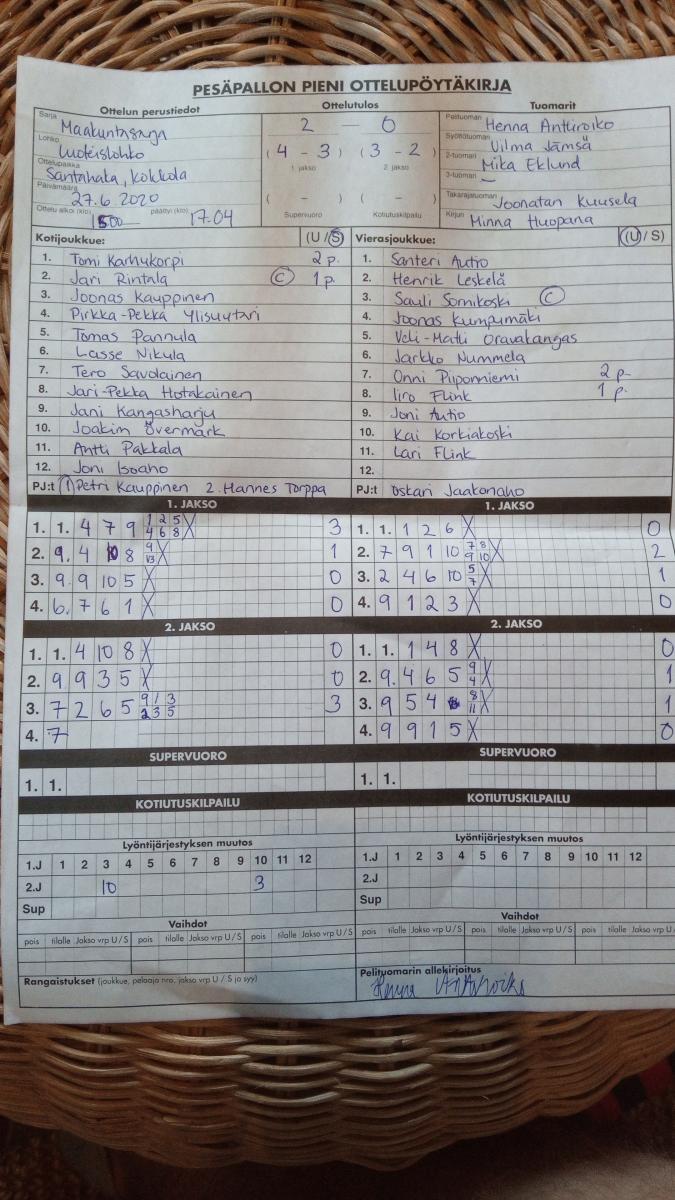 PESÄPALLON PIENI OTTELUPÖYTÄKIRJA
Ottelun perustiedot
Sarja Maakuntasarja
Lohko Luoteislohko
Ottelupaikka Santahaka, Kokkola
Päivämäärä 27.6.2020
Ottelu alkoi (klo) 1500 päättyi (klo) 17.04
Ottelutulos
2 — 0
(4 - 3) (3 - 2)
1. jakso 2. jakso
( - ) ( - )
Supervuoro Kotiutuskilpailu
Tuomarit
Pelituomari Henna Anttiroiko
Syöttötuomari Vilma Jämsä
2-tuomari Mika Eklund
3-tuomari —
Takarajatuomari Joonatan Kuusela
Kirjuri Minna Huopana
Kotijoukkue: (U / S)
1. Tomi Karhukorpi 2 p.
2. Jari Rintala C 1 p.
3. Joonas Kauppinen
4. Pirkka-Pekka Ylisuutari
5. Tomas Pannula
6. Lasse Nikula
7. Tero Savolainen
8. Jari-Pekka Hotakainen
9. Jani Kangasharju
10. Joakim Övermark
11. Antti Pakkala
12. Joni Isoaho
PJ:t 1 Petri Kauppinen 2. Hannes Torppa
Vierasjoukkue: (U / S)
1. Santeri Autio
2. Henrik Leskelä
3. Sauli Somikoski C
4. Joonas Kumpumäki
5. Veli-Matti Oravakangas
6. Jarkko Nummela
7. Onni Piiponniemi 2 p.
8. Iiro Flink 1 p.
9. Joni Autio
10. Kai Korkiakoski
11. Lari Flink
12.
PJ:t Oskari Jaakonaho
1. JAKSO
1. 1. 4 7 9 1 2 5 X 3
4 6 8
2. 9. 4 10 8 9 X 1
3. 9. 9 10 5 X 0
4. 6. 7 6 1 X 0
2. JAKSO
1. 1. 4 10 8 X 0
2. 9 9 3 5 X 0
3. 7 2 6 5 9 1 3 3
2 3 5
4. 7
SUPERVUORO
1. 1.
KOTIUTUSKILPAILU
1. JAKSO
1. 1. 1 2 6 X 0
2. 7 9 1 10 7 8 X 2
9 10
3. 2 4 6 10 5 X 1
7
4. 9 1 2 3 X 0
2. JAKSO
1. 1. 1 4 8 X 0
2. 9. 4 6 5 9 X 1
4
3. 9 5 4 8 X 1
11
4. 9 9 1 5 X 0
SUPERVUORO
1. 1.
KOTIUTUSKILPAILU
Lyöntijärjestyksen muutos
1.J 1 2 3 4 5 6 7 8 9 10 11 12
2.J 10 3
Sup
Vaihdot
pois tilalle Jakso vrp U / S pois tilalle Jakso vrp U / S pois tilalle Jakso vrp U / S
Rangaistukset (joukkue, pelaaja nro, jakso vrp U / S ja syy)
Lyöntijärjestyksen muutos
1.J 1 2 3 4 5 6 7 8 9 10 11 12
2.J
Sup
Vaihdot
pois tilalle Jakso vrp U / S pois tilalle Jakso vrp U / S pois tilalle Jakso vrp U
Pelituomarin allekirjoitus
Henna Anttiroiko